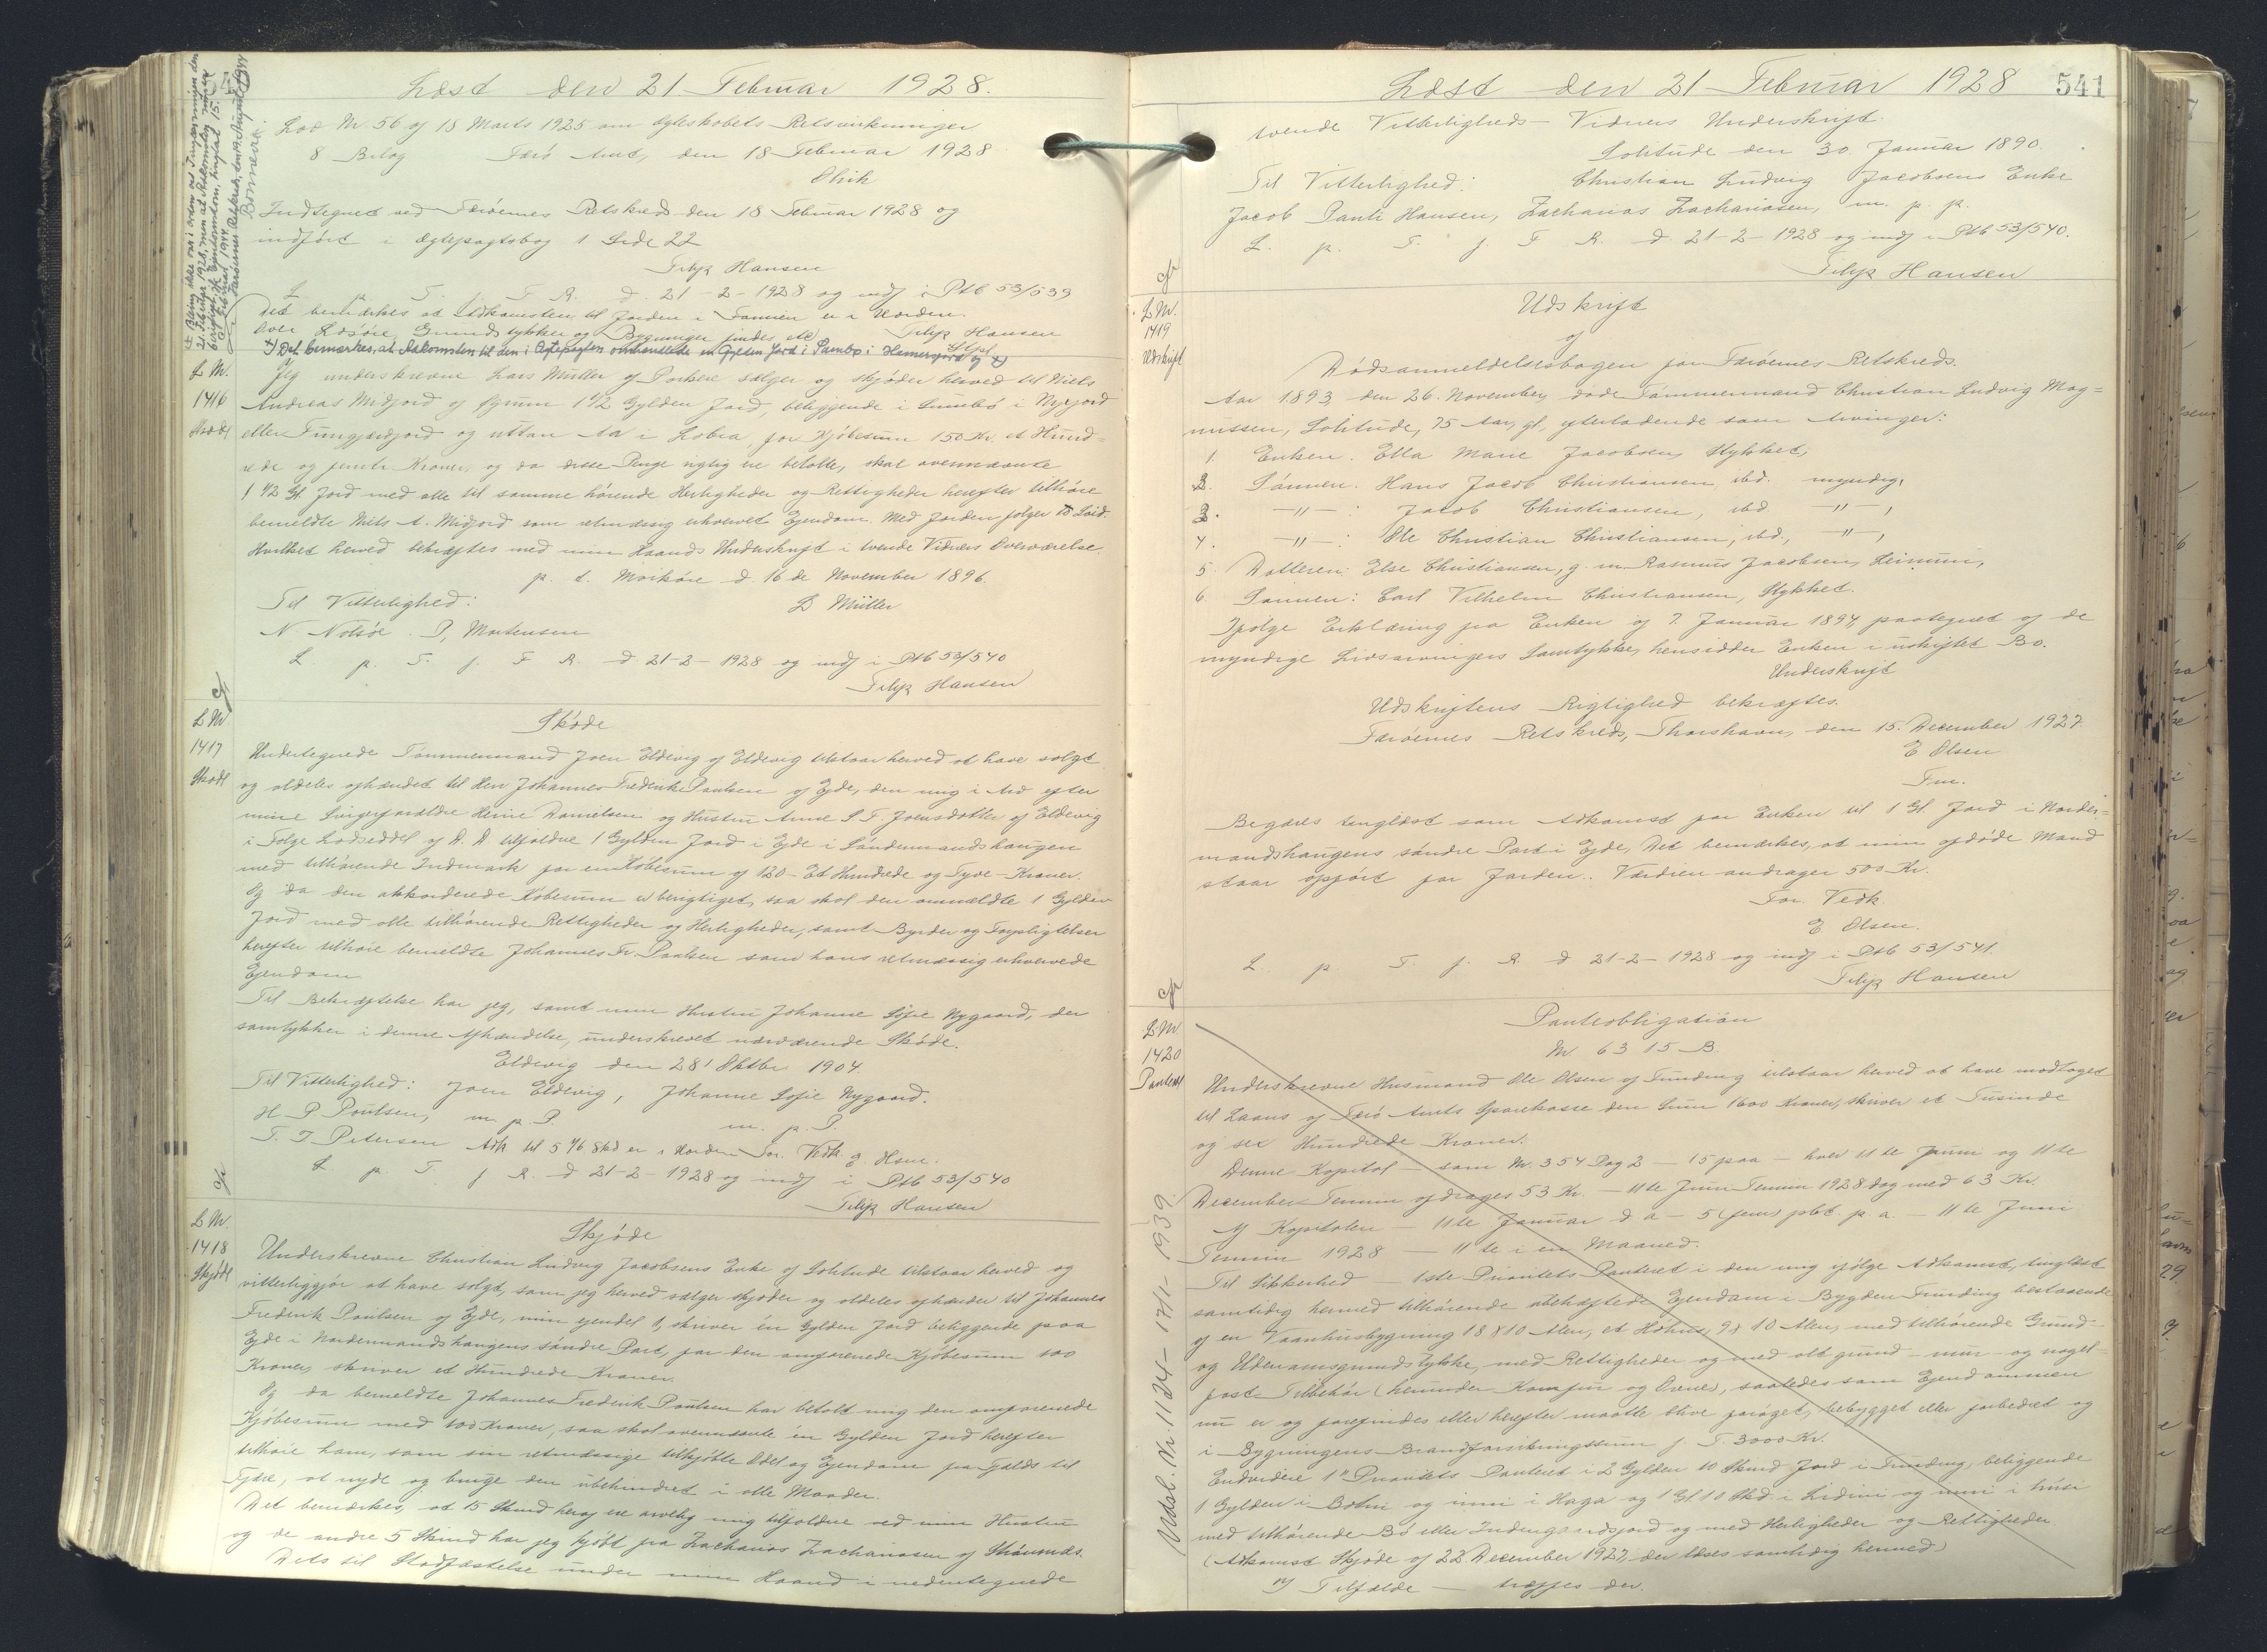 Læst den 21. Februar 1928.
Lov Nr. 56 af 18 Marts 1925 om Ægteskabets Retsvirkninger
8 Bilag Færø Amt, den 18 Februar 1928
Indtegnet ved Færøernes Retskreds den 18 Februar 1928 og
indført i Ægtepagtsbog 1 Side 22
Filip Hansen
L. p. T. F R. d. 21-2-1928 og indf i Ptb 53/539
Det bemærkes at Adkomsten til Jorden i Famien er i Orden.
over Løsøre, Grundstykker og Bygninger findes etc
Filip Hansen
x) Det bemærkes, at Adkomsten til den i Ægtepagten omhandlede en Gylden Jord i Sumbø i Hamersgard og x)
21 Februar 1928, men at Adkomstey
Færøernes Retskreds, den 19. August 1944
L Nr.
1416
Skøde
Jeg underskrevne Lars Müller af Porkere sælger og skjøder herved til Niels
Andreas Midjord af Øyrum 1 1/2 Gylden Jord, beliggende i Sumbø i Nyjord
eller Tungjærdjord og uttan Aa i Lobra, for Kjøbesum 150 Kr. et Hund-
rede og femti Kroner, og da disse Penge rigtig ere betalte, skal ovennævnte
1 1/2 Gl. Jord med alle til samme hørende Herligheder og Rettigheder herefter tilhøre
bemeldte Niels A. Midjord som retmæssig erhvervet Ejendom. Med Jorden følger 10 Leid.
Hvilket herved bekræftes med min Haands Underskrift i tvende Vidners Overværelse.
p. t. Morkøre d. 16 de November 1896.
Til Vitterlighed: L Müller
N Nolsöe. P, Mortensen
L. p. T. f. F R. d 21-2-1928 og indf i Ptb 53/540
Filip Hansen
L Nr
1417
Skøde
Skøde
Undertegnede Tømmermand Joen Eldevig af Eldevig tilstaar herved at have solgt
og aldeles afhændet til Herr Johannes Frederik Paulsen af Ejde, den mig i Arv efter
mine Svigerforældre Heine Danielsen og Hustru Anne S. F. Joensdatter af Eldevig
i Følge Lodseddel af D. D tilfaldne 1 Gylden Jord i Ejde i Søndenmandshaugen
med tilhørende Indmark for en Købesum af 120 - Et Hundrede og Tyve - Kroner.
Og da den akkorderede Købesum er berigtiget, saa skal den ommeldte 1 Gylden
Jord med alle tilhørende Rettigheder og Herligheder, samt Byrder og Forpligtelser
herefter tilhøre bemeldte Johannes Fr. Paulsen som hans retmæssig erhvervede
Ejendom
Til Bekræftelse har jeg, samt min Hustru Johanne Sofie Nygaard, der
samtykker i denne Afhændelse, underskrevet nærværende Skøde.
Eldevig den 28' Oktbr 1904
Til Vitterlighed: Joen Eldevig, Johanne Sofie Nygaard.
H P Poulsen, m. p. P. m. p. P.
T. J Petersen Adk til 5 1/6 Skd er i Orden For. Vedk. E Hsen.
L. p. T. f R. d 21-2-1928 og indf i Ptb 53/540
Filip Hansen
L Nr.
1418
Skjøde
Skjøde
Underskrevne Christian Ludvig Jacobsens Enke af Solitude tilstaar herved og
vitterliggjør at have solgt, som jeg herved sælger skjøder og aldeles afhænder til Johannes
Frederik Poulsen af Ejde, min ejendel 1, skriver én Gylden Jord beliggende paa
Ejde i Nordenmandshaugens søndre Part, for den omforenede Kjøbesum 100
Kroner, skriver et Hundrede Kroner.
Og da bemeldte Johannes Frederik Poulsen har betalt mig den omforenede
Kjøbesum med 100 Kroner, saa skal ovennævnte en Gylden Jord herefter
tilhøre ham, som sin retmæssige tilkjøbte Odel og Ejendom fra Fjelds til
Fjære, at nyde og bruge den ubehindret i alle Maader.
Det bemærkes, at 15 Skind heraf ere arvelig mig tilfaldne ved min Hustru
og de andre 5 Skind har jeg kjøbt fra Zacharias Zachariasen af Strømnæs.
Dets til Stadfæstelse under min Haand i nedentegnede
Læst den 21 Februar 1928
541
tvende Vitterligheds-Vidners Underskrift.
Solitude den 30. Januar 1890.
Til Vitterlighed: Christian Ludvig Jacobsens Enke
Jacob Pauli Hansen, Zacharias Zachariasen, m. p. p.
L. p. T. f. F R. d 21-2-1928 og indf i Ptb 53/540.
Filip Hansen
L Nr.
1419
Udskrift
Udskrift
af
Dødsanmeldelsesbogen for Færøernes Retskreds.
Aar 1893 den 26. November døde Tømmermand Christian Ludvig Mag=
nussen, Solitude, 75 Aar gl, efterladende som Arvinger:
1. Enken: Ella Marie Jacobsen, Stykket,
2. Sønnen: Hans Jacob Christiansen, ibd. myndig,
3. -"- : Jacob Christiansen, ibd -"-,
4. -"- : Ole Christian Christiansen, ibd., -"-,
5. Datteren: Else Christiansen, g. m. Rasmus Jacobsen, Leinum,
6. Sønnen: Carl Vilhelm Christiansen, Stykket.
Ifølge Erklæring fra Enken af 7. Januar 1894, paategnet af de
myndige Livsarvingers Samtykke, hensidder Enken i uskiftet Bo.
Underskrift
Udskriftens Rigtighed bekræftes.
Færøernes Retskreds, Thorshavn, den 15. December 1927.
E Olsen
Fm.
Begæres tinglæst som Adkomst for Enken til 1 Gl. Jord i Norden=
mandshaugens søndre Part i Ejde, Det bemærkes, at min afdøde Mand
staar opført for Jorden. Værdien andrager 500 Kr.
For. Vedk.
E Olsen.
L. p. T. f. R. d 21-2-1928 og indf i Ptb 53/541.
Filip Hansen
L Nr
1420
Panteobl
Panteobligation
Nr. 6315 B.
Underskrevne Husmand Ole Olsen af Funding tilstaar herved at have modtaget
til Laans af Færø Amts Sparekasse den Sum 1600 Kroner, skriver et Tusinde
og sex Hundrede Kroner.
Denne Kapital - som Nr. 354 Pag 2 - 15 paa - hver 11te Juni og 11te
December Termin afdrages 53 Kr. - 11te Juni Termin 1928 dog med 63 Kr.
Af Kapitalen - 11te Januar d a - 5 (fem) pCt. p a - 11te Juni
Termin 1928 - 11te i en Maaned.
Til Sikkerhed - 1ste Prioritets Panteret i den mig ifølge Adkomst, tinglæst
samtidig hermed tilhørende ubehæftede Ejendom i Bygden Funding bestaaende
af en Vaanhusbygning 18 x 10 Alen, et Höhus, 9 x 10 Alen, med tilhørende Grund-
og Udenomsgrundstykke, med Rettigheder og med alt grund- mur- og nagel-
fast Tilbehør (herunder Komfur og Ovne), saaledes som Ejendommen
nu er og forefindes eller herefter maatte blive forøget, bebygget eller forbedret og
i Bygningens Brandforsikringssum f T. 3000 Kr.
Endvidere 1" Prioritets Panteret i 2 Gylden 10 Skind Jord i Funding, beliggende
1 Gylden i Botni og inni i Haga og 1 Gl 10 Skd i Lidini og inni i húsi
med tilhørende Bø eller Indengærdsjord og med Herligheder og Rettigheder
(Adkomst Skjøde af 22 December 1927, der læses samtidig hermed)
I Tilfælde - træffes der.
Udsl. Nr. 1124 - 17/1 - 1939.